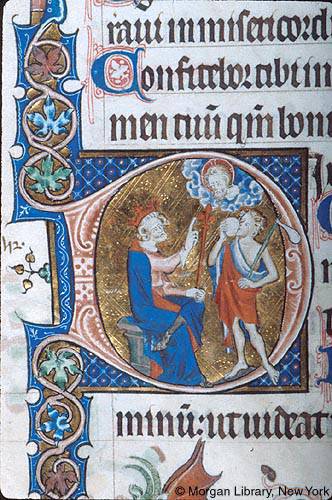 raui in misericord
Confitebor tibi in
men tuū qm̄ bon
D
minū: ut uideat
© Morgan Library, New York